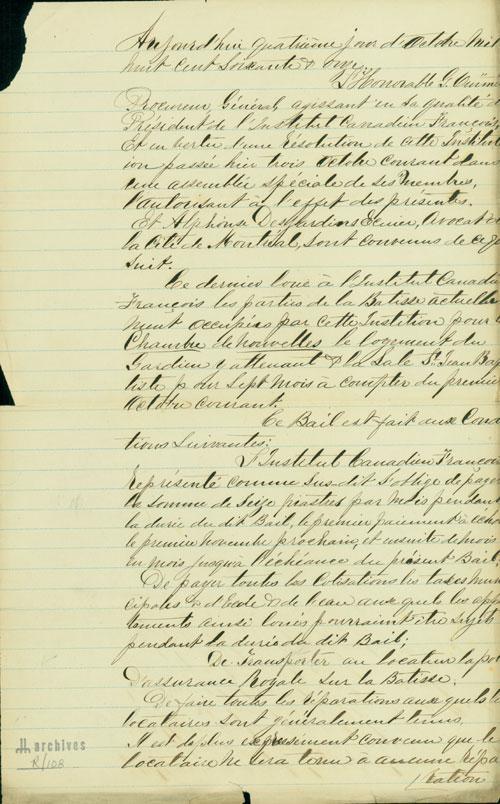 Aujourd'hui quatrième jour d'Octobre Mil
huit cent Soixante & onze.
L'Honorable G. Ouimet
Procureur Général agissant en sa qualité de
Président de l'Institut Canadien Français
Et en vertu d'une résolution de cette Institut
ion passée hier trois Octobre courant dans
une assemblée spéciale de ses membres,
l'autorisant à l'effet des présentes.
Et Alphonse Desjardins Ecuier, Avocat de
la Cité de Montréal, sont convenus de ce q
suit.
Ce dernier loue à l'Institut Canadien
Français les parties de la Batisse actuelle
ment occupées par cette Institution pour
Chambre de Nouvelles le logement du
Gardien y attenant & la Salle St Jean Bap
tiste pour Sept mois à compter du premier
Octobre courant.
Ce Bail est fait aux Condi
tions Suivantes:
L'Institut Canadien Français
représenté comme sus-dit s'oblige de payer
la somme de Seize piastres par mois pendant
la durée du dit Bail, le premier paiement à échoir
le premier novembre prochain, et ensuite de mois
en mois jusqu'à l'échéance du présent Bail;
De payer toutes les Cotisations les taxes Muni
cipales & d'Ecole & de l'eau aux quels les appar
tements ainsi loués pourraient être sujets
pendant la durée du dit Bail;
De Transporter au locateur la pol
D'assurance Royale sur la Batisse.
De faire toutes les réparations aux quels les
locataires sont généralement tenus.
Il est de plus expressément convenu que le
locataire ne sera tenu à aucune répa
ration
archives
R/108